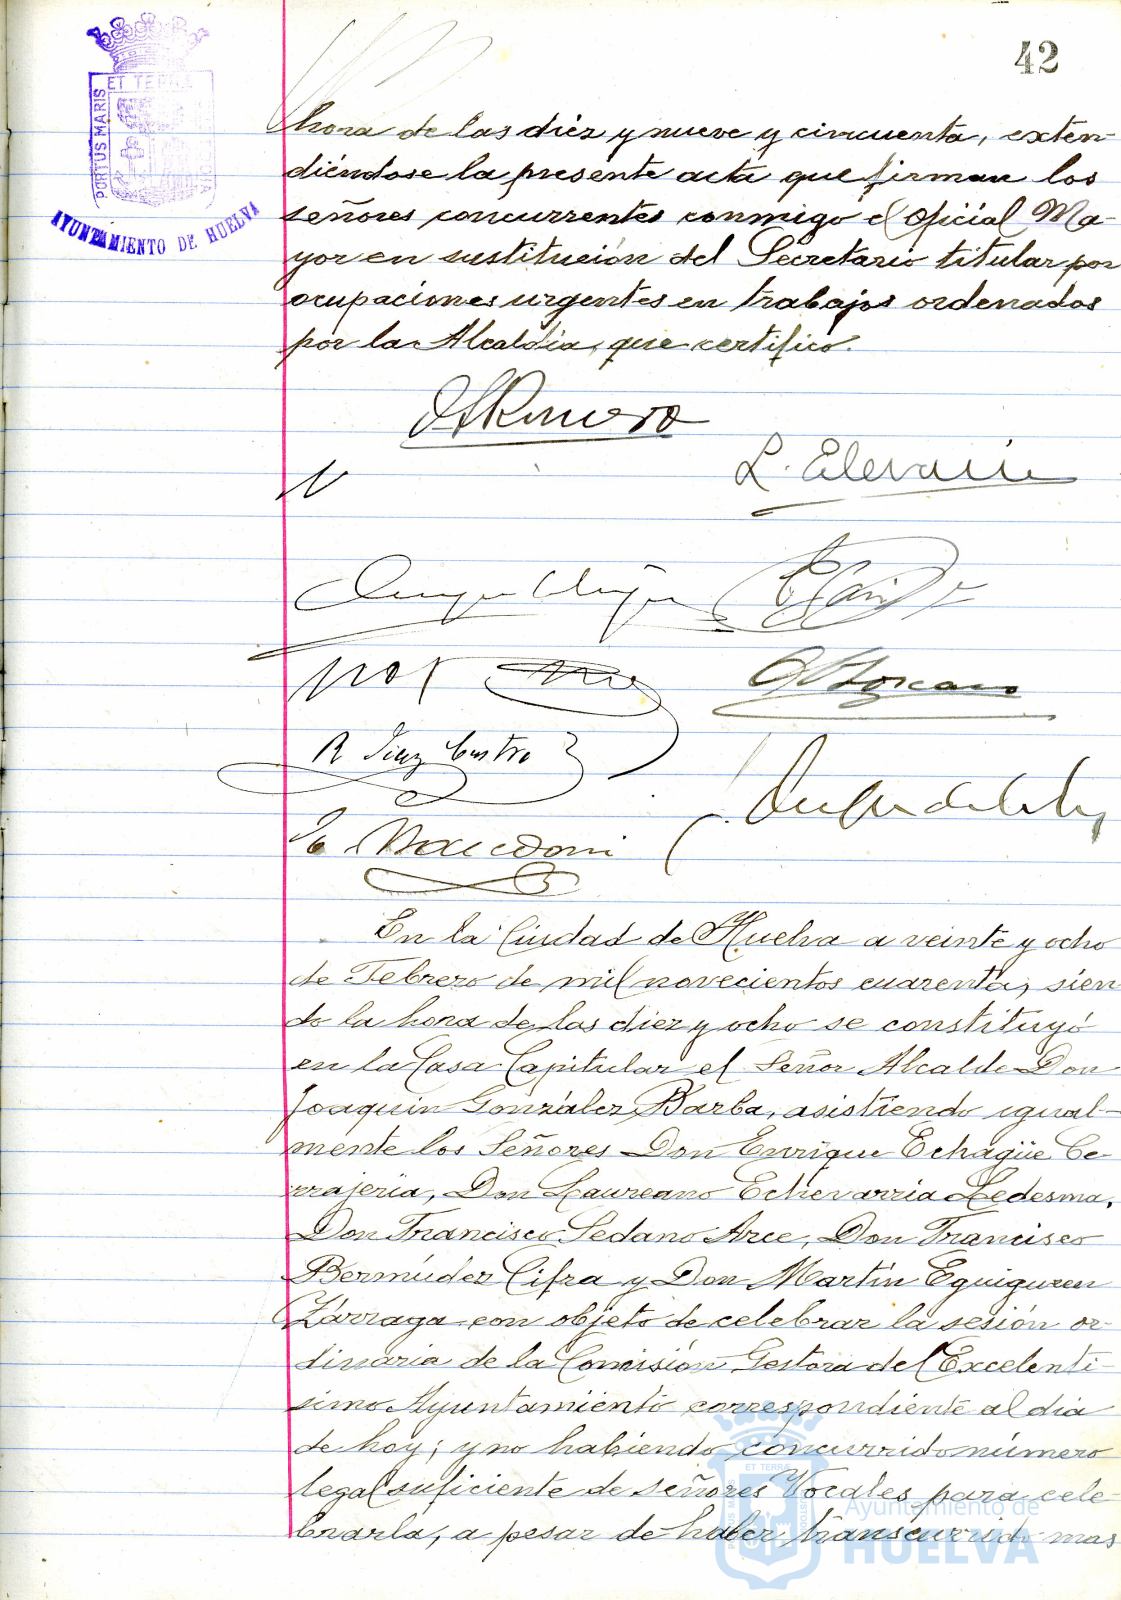 42
PORTUS MARIS
ET TERRÆ
AYUNTAMIENTO DE HUELVA
hora de las diez y nueve y cincuenta, exten-
diéndose la presente acta que firman los
señores concurrentes conmigo el Oficial Ma-
yor en sustitución del Secretario titular por
ocupaciones urgentes en trabajos ordenados
por la Alcaldía, que certifico.
R Diaz Castro
En la Ciudad de Huelva a veinte y ocho
de Febrero de mil novecientos cuarenta, sien-
do la hora de las diez y ocho se constituyó
en la Casa Capitular el Señor Alcalde Don
Joaquin González Barba, asistiendo igual-
mente los Señores Don Enrique Echagüe Ce-
rrajeria, Don Laureano Echevarria Ledesma,
Don Francisco Sedano Arce, Don Francisco
Bermúdez Cifra y Don Martín Eguiguren
Zárraga con objeto de celebrar la sesión or-
dinaria de la Comisión Gestora del Excelentí-
simo Ayuntamiento correspondiente al dia
de hoy; y no habiendo concurrido número
legal suficiente de señores Vocales para cele-
brarla, a pesar de haber transcurrido mas
Ayuntamiento de
HUELVA